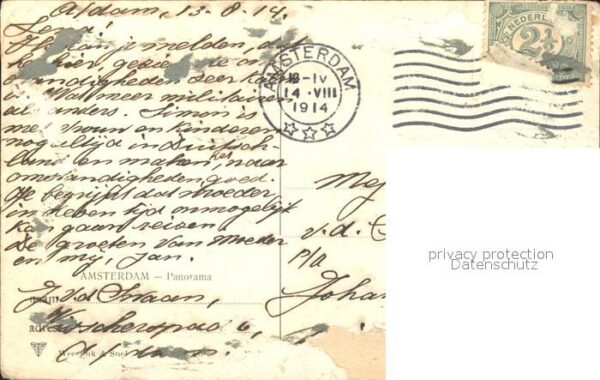 A/dam, 13-8-14.
Lena!
Ik kan je melden, dat
hier, gezien de om-
standigheden zeer kalm
is. Wat meer militairen
als anders. Simon is
met vrouw en kinderen
nog altijd in Duitsch-
land en maken het, naar
omstandigheden, goed.
Je begrijpt dat moeder
in dezen tijd onmogelijk
kan gaan reizen.
De groeten van Moeder
en mij, Jan.
AMSTERDAM — Panorama
naam
J. v. d. Swaan,
adres
6,
A/dam.
Weenenk & Snel
AMSTERDAM
12-IV
14 · VIII
1914
NEDERL
2½
Mej
v. d.
p/a
Joha
privacy protection
Datenschutz